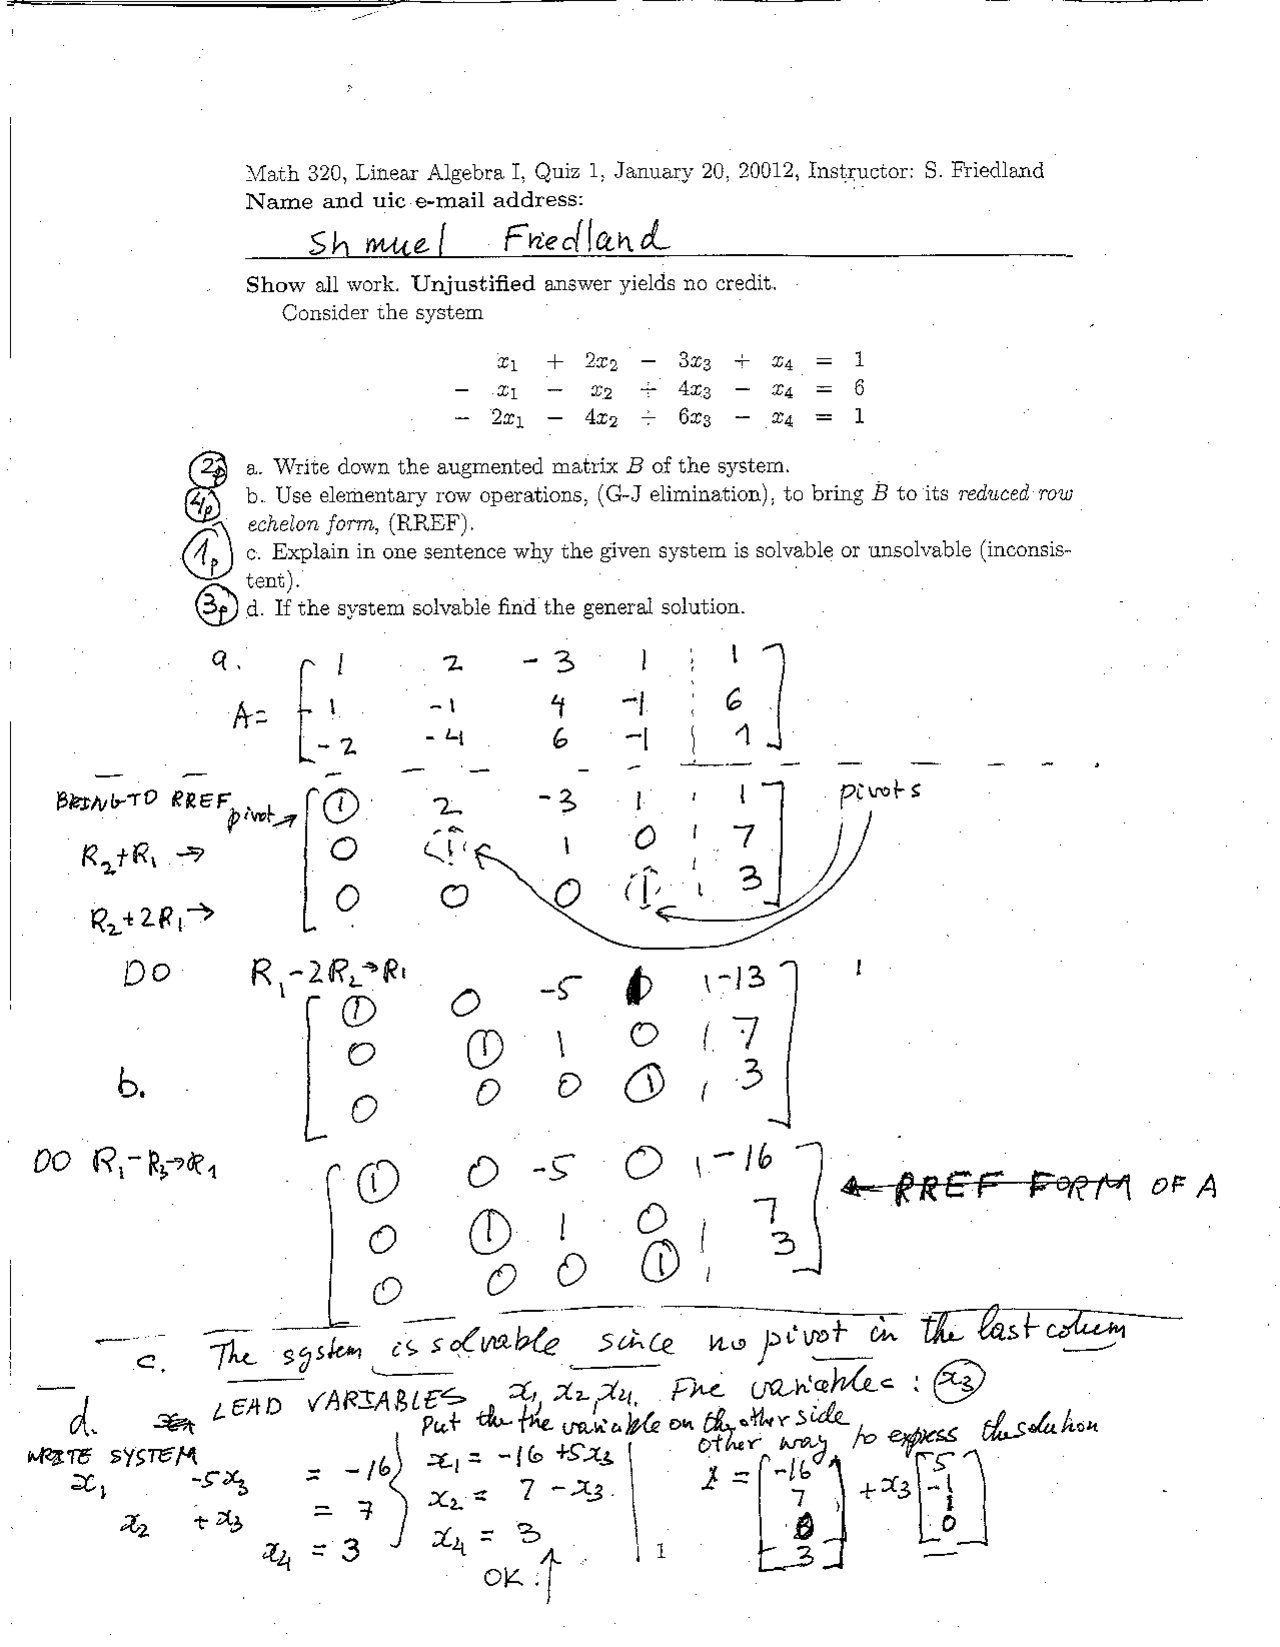 Math 320, Linear Algebra I, Quiz 1, January 20, 20012, Instructor: S. Friedland
Name and uic e-mail address:
Shmuel Friedland
Show all work. Unjustified answer yields no credit.
Consider the system
x1 + 2x2 − 3x3 + x4 = 1
− x1 − x2 + 4x3 − x4 = 6
− 2x1 − 4x2 + 6x3 − x4 = 1
2p a. Write down the augmented matrix B of the system.
4p b. Use elementary row operations, (G-J elimination), to bring B to its reduced row
echelon form, (RREF).
1p c. Explain in one sentence why the given system is solvable or unsolvable (inconsis-
tent).
3p d. If the system solvable find the general solution.
a.
1 2 -3 1 1
A= -1 -1 4 -1 6
-2 -4 6 -1 1
BRING TO RREF pivot → 1 2 -3 1 1 pivots
R2+R1 → 0 1 1 0 7
R2+2R1 → 0 0 0 1 3
DO R1-2R2→R1
1 0 -5 1 -13
0 1 1 0 7
b. 0 0 0 1 3
DO R1-R3→R1
1 0 -5 0 -16 ← RREF FORM OF A
0 1 1 0 7
0 0 0 1 3
c. The system is solvable since no pivot in the last colum
d. LEAD VARIABLES x1, x2, x4. Free variables: x3
WRITE SYSTEM
x1 -5x3 = -16
x2 + x3 = 7
x4 = 3
Put the the variable on the other side
x1 = -16 +5x3
x2 = 7 - x3
x4 = 3
OK
Other way to express the solution
x = [-16 7 0 3] + x3 [5 -1 1 0]
1